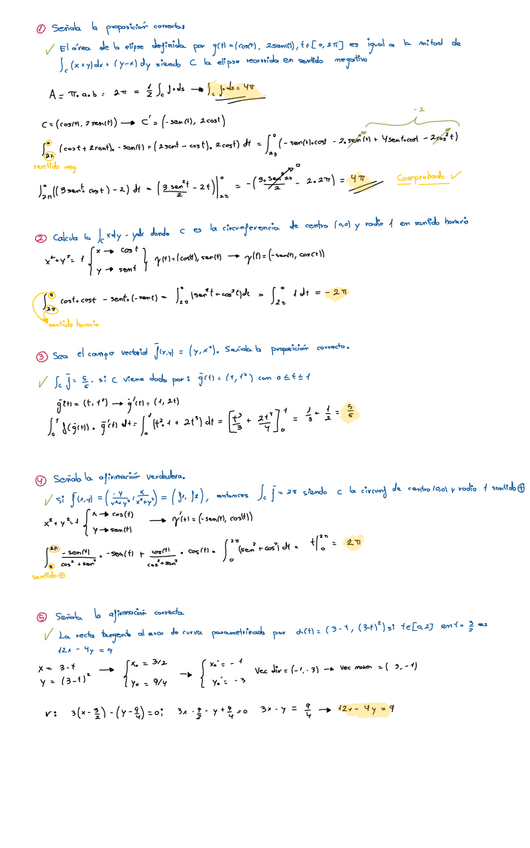 ① Señala la proposición correcta
✓ El área de la elipse definida por g(t)=(cos(t), 2sen(t)), t∈[0,2π] es igual a la mitad de
∫c (x+y)dx + (y-x)dy siendo C la elipse recorrida en sentido negativo
A = π·a·b = 2π = 1/2 ∫c f·ds → ∫c f·ds = 4π
C = (cos(t), 2sen(t)) → C' = (-sen(t), 2cost)
-2
(cost + 2sent)·-sen(t) + (2sent - cost)·2cost) dt = ∫ (-sen(t)·cost - 2·sen²(t) + 4sent·cost - 2cos²t)
sentido neg
∫ ((3sent cost) - 2) dt = (3sen²t/2 - 2t) = -(3·sen²2π/2 - 2·2π) = 4π Comprobado ✓
② Calcula la ∫c xdy - ydx donde C es la circunferencia de centro (0,0) y radio 1 en sentido horario
x²+y²=1 { x → cost
y → sent } γ(t)=(cos(t), sen(t)) → γ'(t)=(-sen(t), cos(t))
∫ cost·cost - sent·(-sent) = ∫ (sen²t+cos²t)dt = ∫ 1dt = -2π
sentido horario
③ Sea el campo vectorial f(x,y) = (y, x²). Señala la proposición correcta.
✓ ∫c f = 5/6 · si C viene dado por: g(t) = (t, t²) con 0≤t≤1
g(t) = (t, t²) → g'(t) = (1, 2t)
∫ f(g(t))·g'(t) dt = ∫ (t²·1 + 2t³) dt = [t³/3 + 2t⁴/4] = 1/3 + 1/2 = 5/6
④ Señala la afirmación verdadera.
✓ Si f(x,y) = (-y/x²+y², x/x²+y²) = (f1, f2), entonces ∫c f = 2π siendo C la circunf de centro (0,0) y radio 1 sentido ⊕
x²+y²=1 { x → cos(t)
y → sen(t) → γ'(t) = (-sen(t), cos(t))
∫ -sen(t)/cos²+sen² · -sen(t) + cos(t)/cos²+sen² · cos(t) = ∫ (sen²+cos²) dt = t = 2π
sentido ⊕
⑤ Señala la afirmación correcta
✓ La recta tangente al arco de curva parametrizado por α(t) = (3-t, (3-t)²) si t∈[0,2] en t=3/2 es
12x - 4y = 9
x = 3-t
y = (3-t)² → { x₀ = 3/2
y₀ = 9/4 → { x₀' = -1
y₀' = -3 Vec dir = (-1,-3) → vec norm = (3,-1)
r: 3(x-3/2) - (y-9/4) = 0; 3x - 9/2 - y + 9/4 = 0 3x - y = 9/4 → 12x - 4y = 9